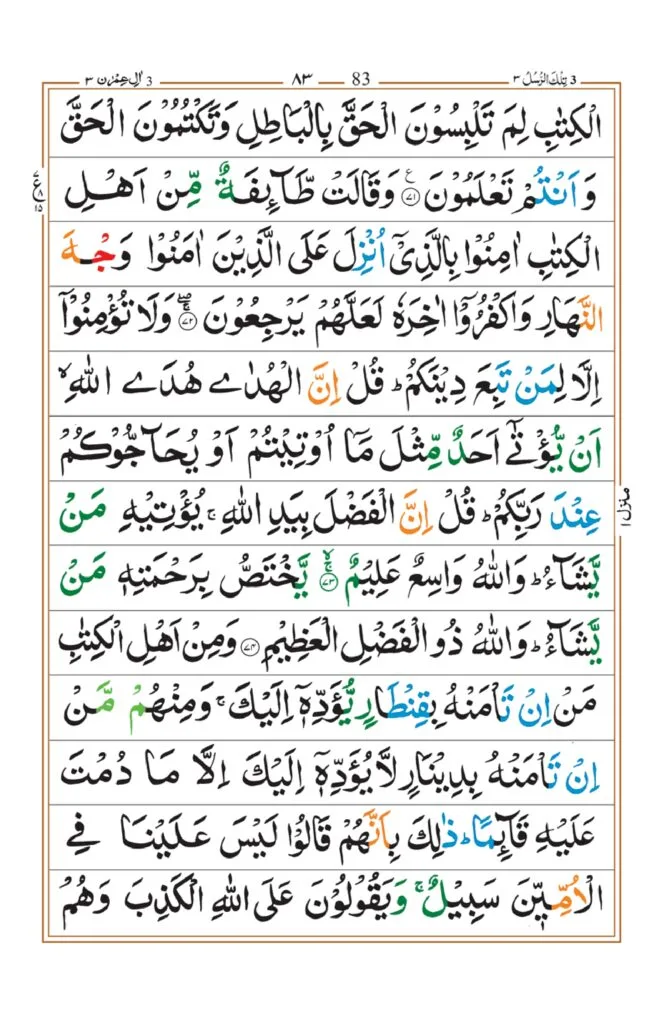 تِلْكَ الرُّسُلُ ٣ 3 83 ٨٣ اٰلِ عِمْرٰن ٣ 3
الْكِتٰبِ لِمَ تَلْبِسُوْنَ الْحَقَّ بِالْبَاطِلِ وَتَكْتُمُوْنَ الْحَقَّ
وَاَنْتُمْ تَعْلَمُوْنَ ۧ‏ ﴿۷۱﴾ وَقَالَتْ طَّآئِفَةٌ مِّنْ اَهْلِ
الْكِتٰبِ اٰمِنُوْا بِالَّذِىْۤ اُنْزِلَ عَلَى الَّذِيْنَ اٰمَنُوْا وَجْهَ
النَّهَارِ وَاكْفُرُوْۤا اٰخِرَهٗ لَعَلَّهُمْ يَرْجِعُوْنَ ۖۚ ﴿۷۲﴾ وَلَا تُؤْمِنُوْۤا
اِلَّا لِمَنْ تَبِعَ دِيْنَكُمْ ؕ قُلْ اِنَّ الْهُدٰى هُدَى اللّٰهِ ۙ
اَنْ يُّؤْتٰٓى اَحَدٌ مِّثْلَ مَاۤ اُوْتِيْتُمْ اَوْ يُحَآجُّوْكُمْ
عِنْدَ رَبِّكُمْ ؕ قُلْ اِنَّ الْفَضْلَ بِيَدِ اللّٰهِ ۚ يُؤْتِيْهِ مَنْ
يَّشَآءُ ؕ وَاللّٰهُ وَاسِعٌ عَلِيْمٌ ۚۙ ﴿۷۳﴾ يَّخْتَصُّ بِرَحْمَتِهٖ مَنْ
يَّشَآءُ ؕ وَاللّٰهُ ذُو الْفَضْلِ الْعَظِيْمِ ﴿۷۴﴾ وَمِنْ اَهْلِ الْكِتٰبِ
مَنْ اِنْ تَاْمَنْهُ بِقِنْطَارٍ يُّؤَدِّهٖۤ اِلَيْكَ ۚ وَمِنْهُمْ مَّنْ
اِنْ تَاْمَنْهُ بِدِيْنَارٍ لَّا يُؤَدِّهٖۤ اِلَيْكَ اِلَّا مَا دُمْتَ
عَلَيْهِ قَآئِمًا ؕ ذٰلِكَ بِاَنَّهُمْ قَالُوْا لَيْسَ عَلَيْنَا فِى
الْاُمِّيّٖنَ سَبِيْلٌ ۚ وَيَقُوْلُوْنَ عَلَى اللّٰهِ الْكَذِبَ وَهُمْ
منزل ۱